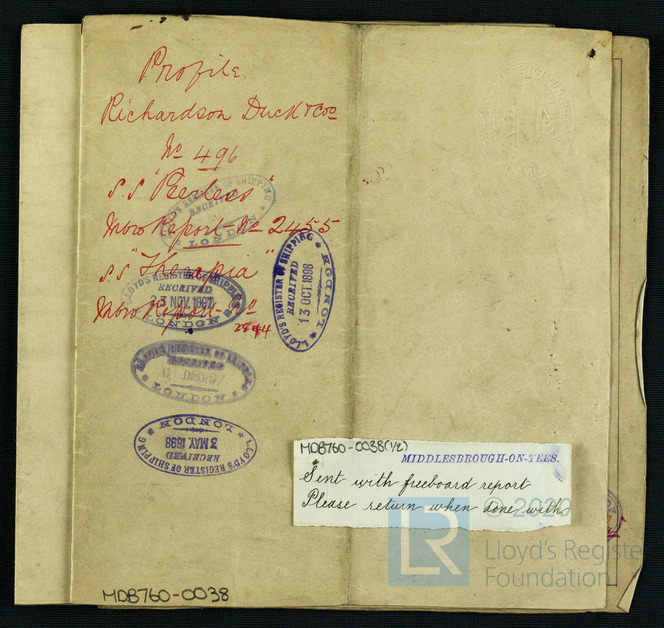 Profile.
Richardson Duck & Co
No 496
S.S "Peerless"
Mbro Report No 2455
S.S "Therapia"
Mbro Report No
LLOYD'S REGISTER OF SHIPPING
RECEIVED
LONDON
LLOYD'S REGISTER OF SHIPPING
RECEIVED
23 NOV 1897
LONDON
LLOYD'S REGISTER OF SHIPPING
RECEIVED
13 OCT. 1898
LONDON
LONDON
LLOYD'S REGISTER OF SHIPPING
RECEIVED
3 MAY. 1898
LONDON
MDB760-0038(1/2)
MIDDLESBROUGH-ON-TEES.
Sent with freeboard report
Please return when done with
© 2020
LR
Lloyd's Register
Foundation
MDB760-0038